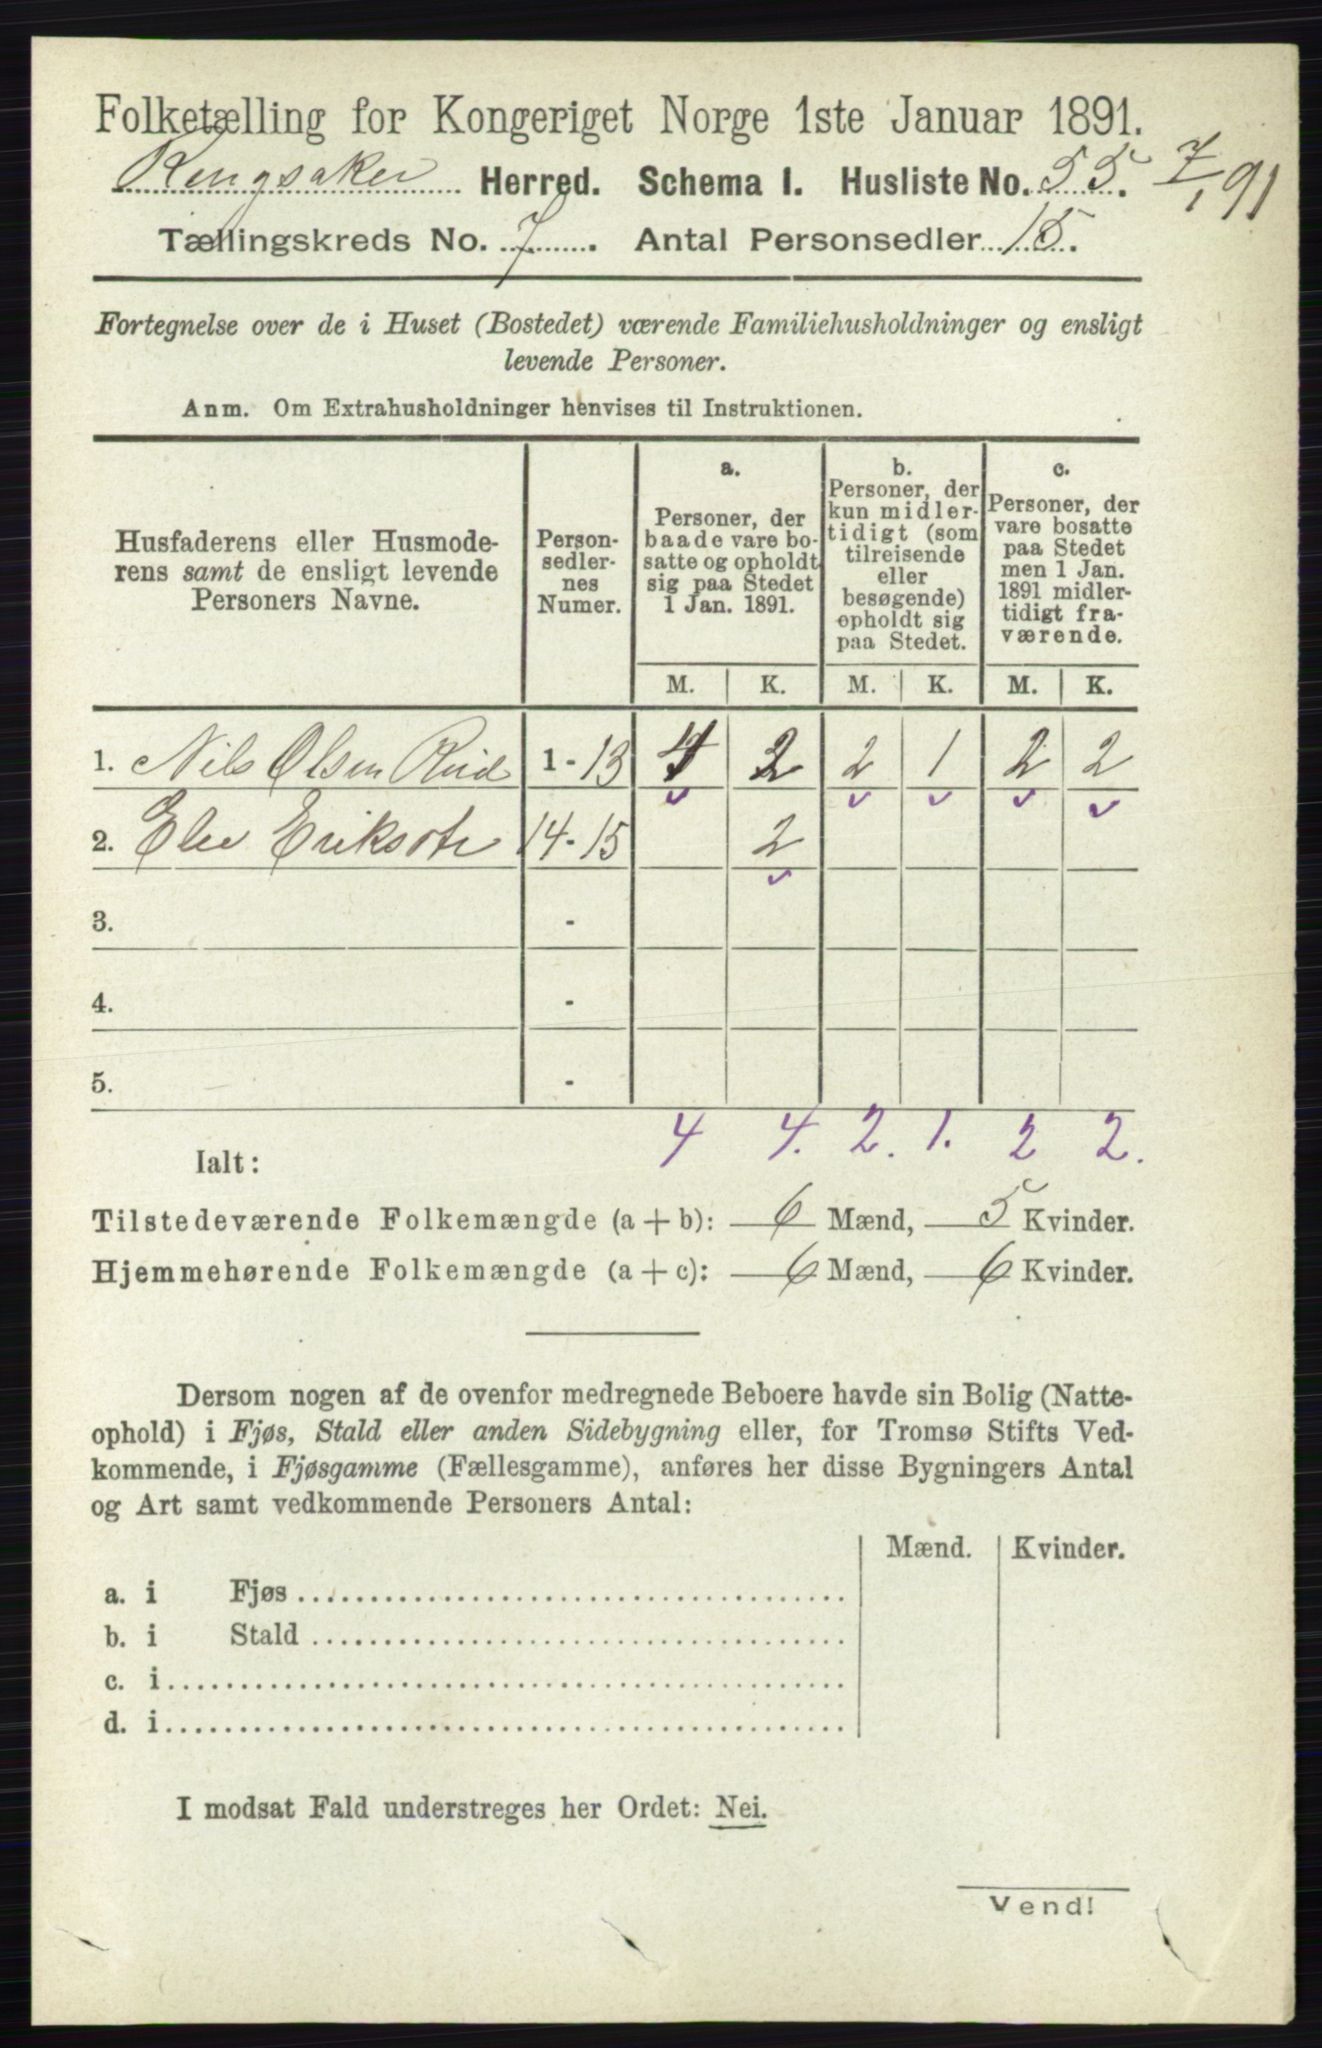 Folketælling for Kongeriget Norge 1ste Januar 1891.
Ringsaker Herred. Schema I. Husliste No. 55. 7/1 91
Tællingskreds No. 7. Antal Personsedler 15.
Fortegnelse over de i Huset (Bostedet) værende Familiehusholdninger og ensligt
levende Personer.
Anm. Om Extrahusholdninger henvises til Instruktionen.
Husfaderens eller Husmode-
rens samt de ensligt levende
Personers Navne.
Person-
sedler-
nes
Numer.
a.
Personer, der
baade vare bo-
satte og opholdt
sig paa Stedet
1 Jan. 1891.
b.
Personer, der
kun midler-
tidigt (som
tilreisende
eller
besøgende)
opholdt sig
paa Stedet.
c.
Personer, der
vare bosatte
paa Stedet
men 1 Jan.
1891 midler-
tidigt fra-
værende.
M. K. M. K. M. K.
1. Nils Olsen Rud 1 - 13 4 2 2 1 2 2
2. Eriksdtr 14 - 15 2
3. -
4. -
5. -
Ialt: 4 4. 2. 1. 2 2.
Tilstedeværende Folkemængde (a + b): 6 Mænd, 5 Kvinder.
Hjemmehørende Folkemængde (a + c): 6 Mænd, 6 Kvinder.
Dersom nogen af de ovenfor medregnede Beboere havde sin Bolig (Natte-
ophold) i Fjøs, Stald eller anden Sidebygning eller, for Tromsø Stifts Ved-
kommende, i Fjøsgamme (Fællesgamme), anføres her disse Bygningers Antal
og Art samt vedkommende Personers Antal:
Mænd. Kvinder.
a. i Fjøs
b. i Stald
c. i
d. i
I modsat Fald understreges her Ordet: Nei.
Vend!